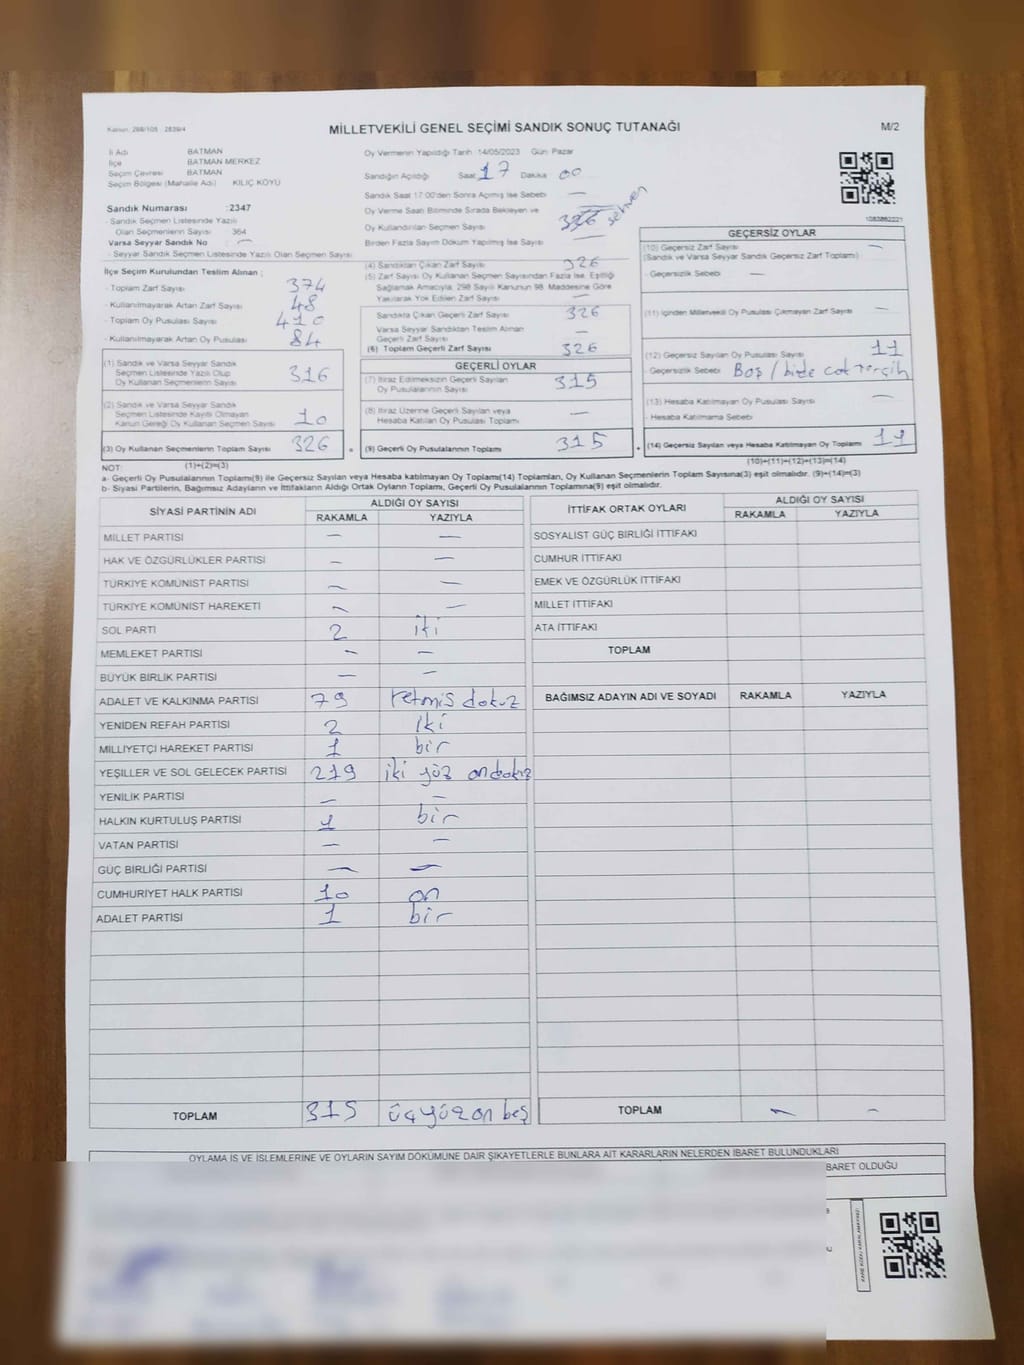 Kanun: 298/105 - 2839/4
MİLLETVEKİLİ GENEL SEÇİMİ SANDIK SONUÇ TUTANAĞI
M/2
İl Adı BATMAN
İlçe BATMAN MERKEZ
Seçim Çevresi BATMAN
Seçim Bölgesi (Mahalle Adı) KILIÇ KÖYÜ
Sandık Numarası :2347
- Sandık Seçmen Listesinde Yazılı
Olan Seçmenlerin Sayısı 364
Varsa Seyyar Sandık No : —
- Seyyar Sandık Seçmen Listesinde Yazılı Olan Seçmen Sayısı
İlçe Seçim Kurulundan Teslim Alınan ;
- Toplam Zarf Sayısı 374
- Kullanılmayarak Artan Zarf Sayısı 48
- Toplam Oy Pusulası Sayısı 410
- Kullanılmayarak Artan Oy Pusulası 84
(1) Sandık ve Varsa Seyyar Sandık
Seçmen Listesinde Yazılı Olup
Oy Kullanan Seçmenlerin Sayısı 316
(2) Sandık ve Varsa Seyyar Sandık
Seçmen Listesinde Kayıtlı Olmayan
Kanun Gereği Oy Kullanan Seçmen Sayısı 10
(3) Oy Kullanan Seçmenlerin Toplam Sayısı 326
Oy Vermenin Yapıldığı Tarih :14/05/2023 Gün: Pazar
Sandığın Açıldığı Saat 17 Dakika 00
Sandık Saat 17:00'den Sonra Açılmış İse Sebebi —
Oy Verme Saati Bitiminde Sırada Bekleyen ve
Oy Kullandırılan Seçmen Sayısı 326 sehven
Birden Fazla Sayım Döküm Yapılmış İse Sayısı —
(4) Sandıktan Çıkan Zarf Sayısı 326
(5) Zarf Sayısı Oy Kullanan Seçmen Sayısından Fazla İse, Eşitliği
Sağlamak Amacıyla, 298 Sayılı Kanunun 98. Maddesine Göre
Yakılarak Yok Edilen Zarf Sayısı —
Sandıkta Çıkan Geçerli Zarf Sayısı 326
Varsa Seyyar Sandıktan Teslim Alınan
Geçerli Zarf Sayısı —
(6) Toplam Geçerli Zarf Sayısı 326
GEÇERLİ OYLAR
(7) İtiraz Edilmeksizin Geçerli Sayılan
Oy Pusulalarının Sayısı 315
(8) İtiraz Üzerine Geçerli Sayılan veya
Hesaba Katılan Oy Pusulası Toplamı —
(9) Geçerli Oy Pusulalarının Toplamı 315
1083862221
GEÇERSİZ OYLAR
(10) Geçersiz Zarf Sayısı —
(Sandık ve Varsa Seyyar Sandık Geçersiz Zarf Toplamı)
- Geçersizlik Sebebi —
(11) İçinden Milletvekili Oy Pusulası Çıkmayan Zarf Sayısı —
(12) Geçersiz Sayılan Oy Pusulası Sayısı 11
- Geçersizlik Sebebi Boş / birde cok tercih
(13) Hesaba Katılmayan Oy Pusulası Sayısı —
Hesaba Katılmama Sebebi
(14) Geçersiz Sayılan veya Hesaba Katılmayan Oy Toplamı 11
NOT: (1)+(2)=(3)
(10)+(11)+(12)+(13)=(14)
a- Geçerli Oy Pusulalarının Toplamı(9) ile Geçersiz Sayılan veya Hesaba katılmayan Oy Toplamı(14) Toplamları, Oy Kullanan Seçmenlerin Toplam Sayısına(3) eşit olmalıdır. (9)+(14)=(3)
b- Siyasi Partilerin, Bağımsız Adayların ve İttifakların Aldığı Ortak Oyların Toplamı, Geçerli Oy Pusulalarının Toplamına(9) eşit olmalıdır.
SİYASİ PARTİNİN ADI ALDIĞI OY SAYISI
RAKAMLA YAZIYLA
MİLLET PARTİSİ — —
HAK VE ÖZGÜRLÜKLER PARTİSİ — —
TÜRKİYE KOMÜNİST PARTİSİ — —
TÜRKİYE KOMÜNİST HAREKETİ — —
SOL PARTİ 2 iki
MEMLEKET PARTİSİ — —
BÜYÜK BİRLİK PARTİSİ — —
ADALET VE KALKINMA PARTİSİ 79 yetmis dokuz
YENİDEN REFAH PARTİSİ 2 iki
MİLLİYETÇİ HAREKET PARTİSİ 1 bir
YEŞİLLER VE SOL GELECEK PARTİSİ 219 iki yüz ondokuz
YENİLİK PARTİSİ — —
HALKIN KURTULUŞ PARTİSİ 1 bir
VATAN PARTİSİ — —
GÜÇ BİRLİĞİ PARTİSİ — —
CUMHURİYET HALK PARTİSİ 10 on
ADALET PARTİSİ 1 bir
TOPLAM 315 üçyüz on beş
İTTİFAK ORTAK OYLARI ALDIĞI OY SAYISI
RAKAMLA YAZIYLA
SOSYALİST GÜÇ BİRLİĞİ İTTİFAKI
CUMHUR İTTİFAKI
EMEK VE ÖZGÜRLÜK İTTİFAKI
MİLLET İTTİFAKI
ATA İTTİFAKI
TOPLAM
BAĞIMSIZ ADAYIN ADI VE SOYADI RAKAMLA YAZIYLA
TOPLAM — —
OYLAMA İŞ VE İŞLEMLERİNE VE OYLARIN SAYIM DÖKÜMÜNE DAİR ŞİKAYETLERLE BUNLARA AİT KARARLARIN NELERDEN İBARET BULUNDUKLARI
BARET OLDUĞU